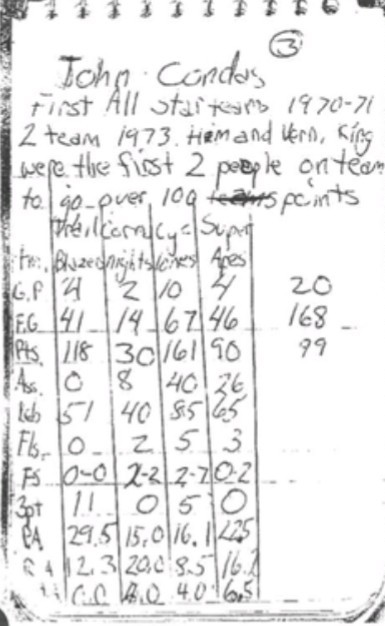 3
John Condas
First All star teams 1970-71
2 team 1973. Him and Vern, King
were the first 2 people on team
to go over 100 teams points
Trail Cy- Super
tm. Blazers Aces
G.P 4 2 10 4 20
F.G 41 14 67 46 168
Pts. 118 30 161 90 99
Ass. 0 8 40 26
Reb 51 40 85 65
Fls. 0 2 5 3
FS 0-0 2-2 2-7 0-2
3pt 11 0 5 0
PA 29.5 15.0 16.1 22.5
RA 12.3 20.0 8.5 16.2
0.0 4.0 6.5